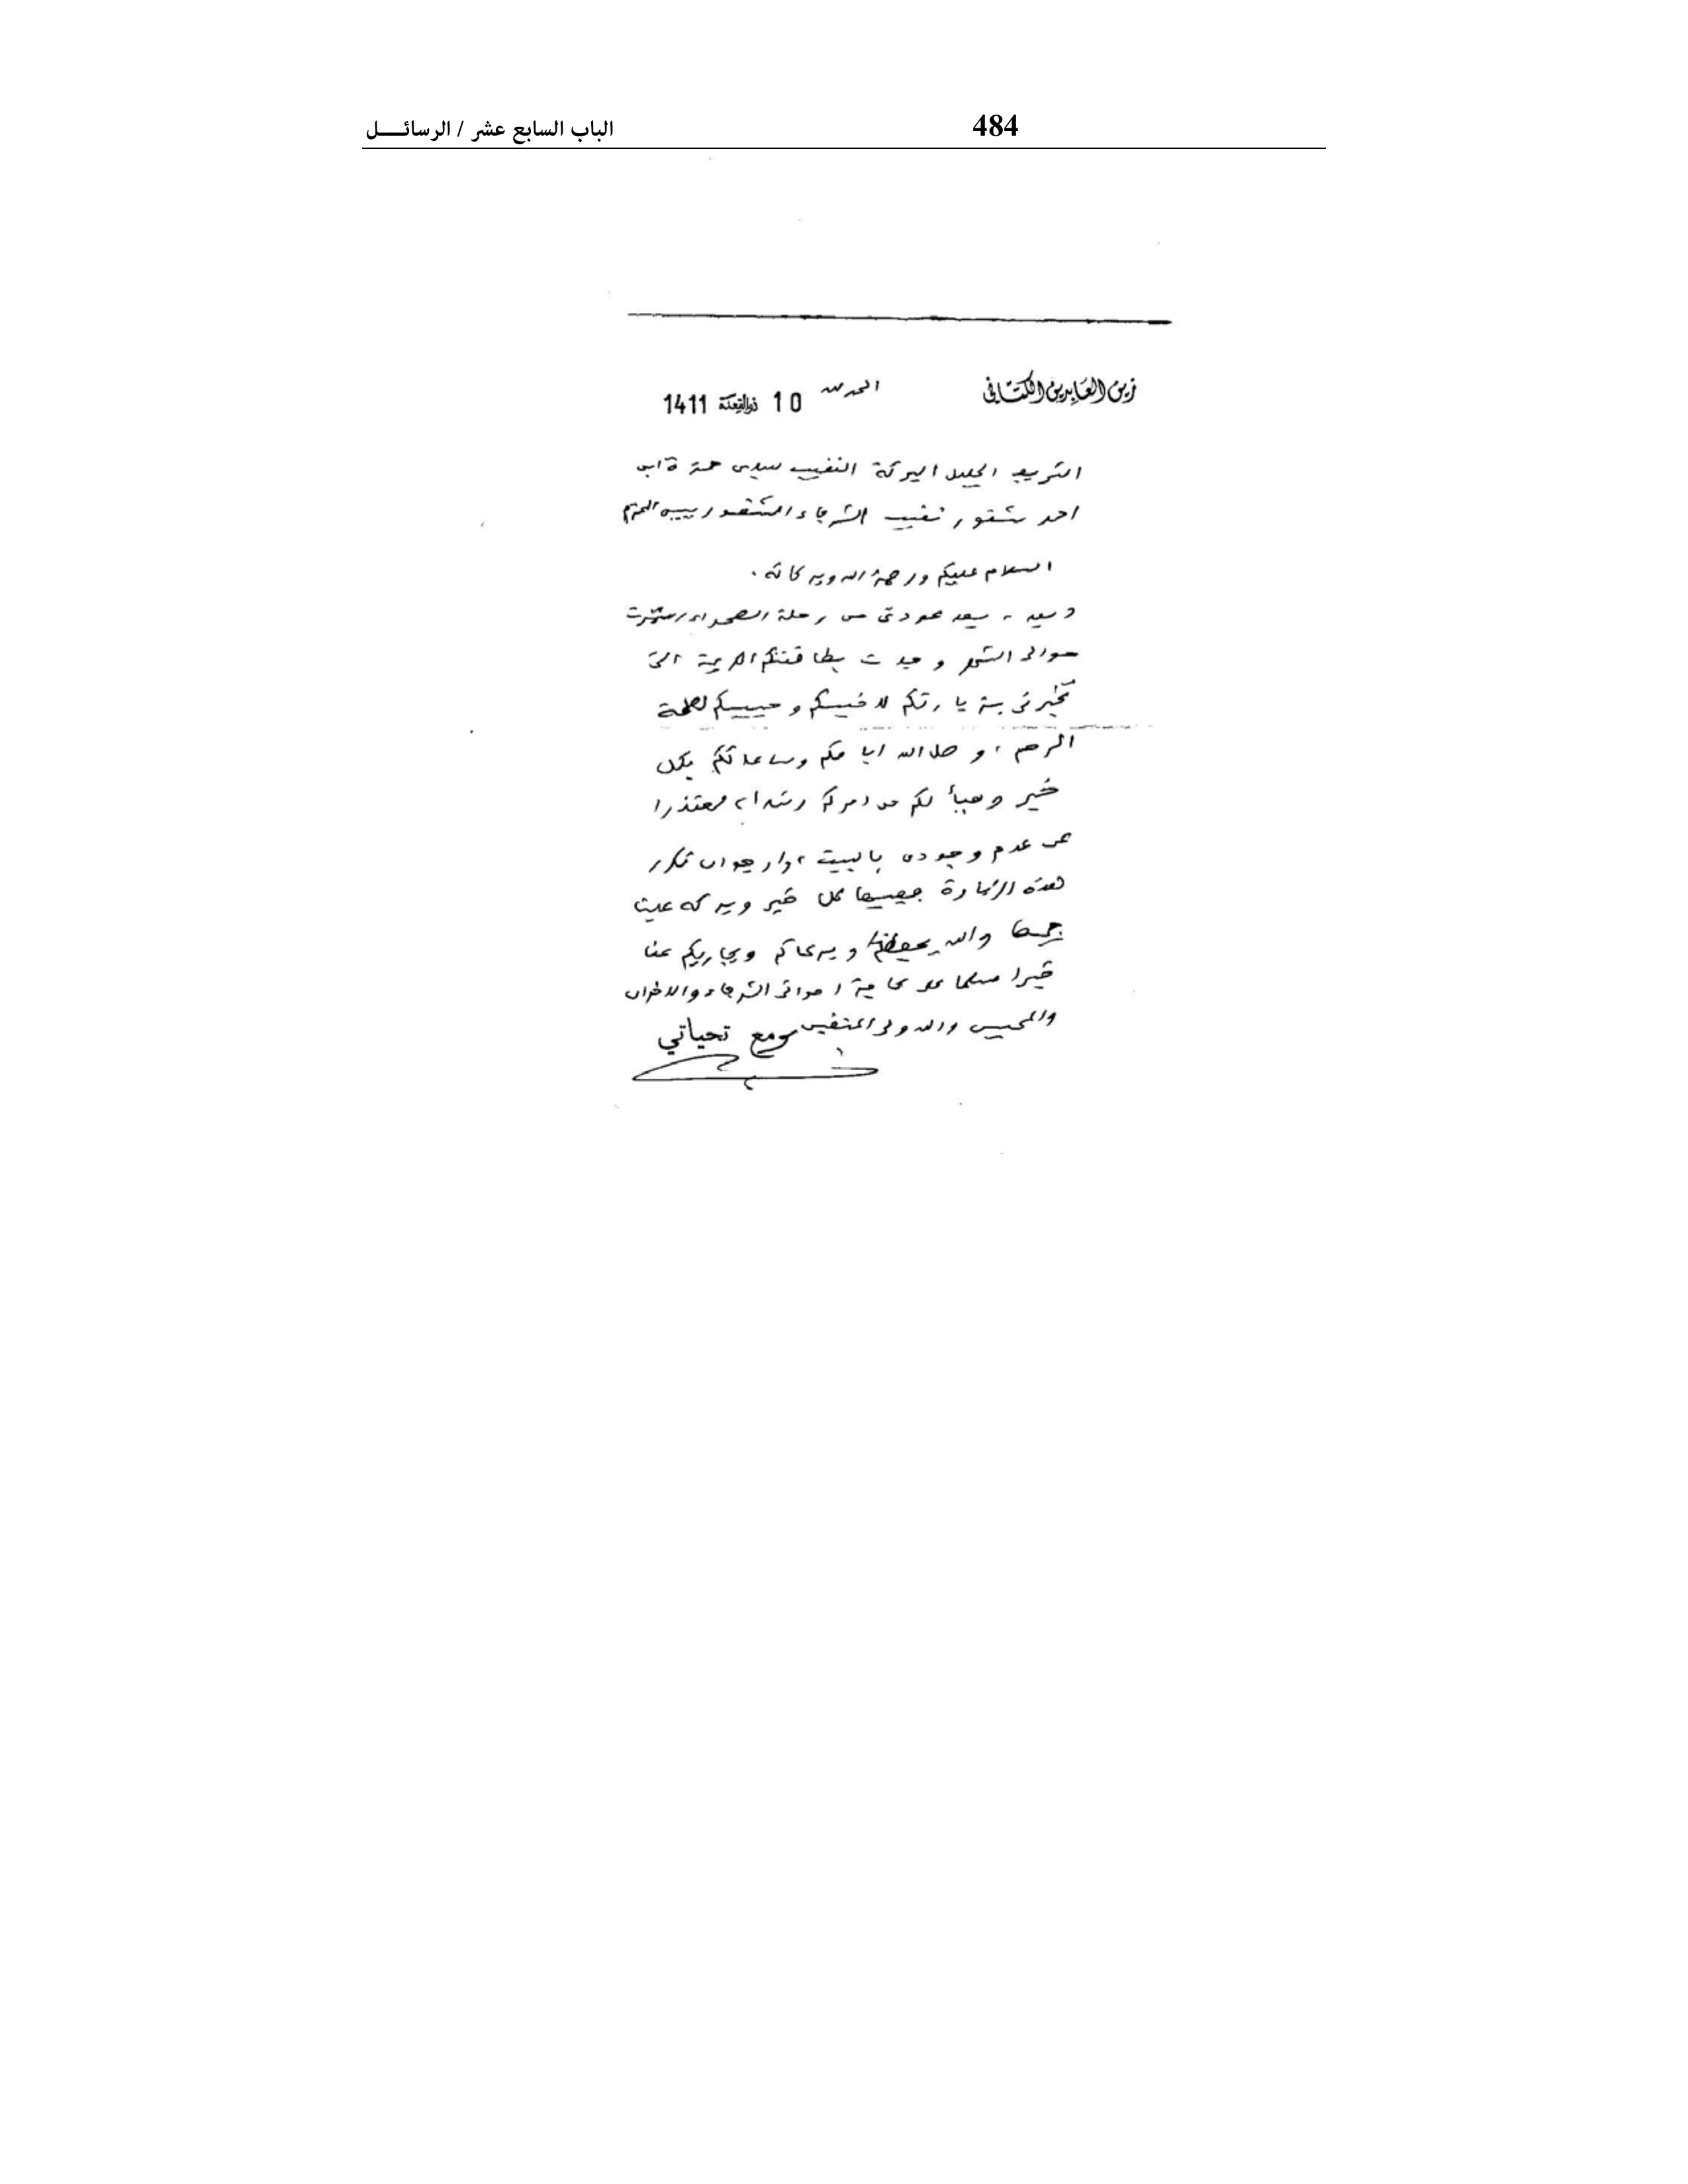 484
الباب السابع عشر / الرسائـــل
زين العابدين الكتاني
الحمد لله 10 ذوالقعدة 1411
الشريف الجليل البركة النقيب سيدي حمزة ابن
احمد شقور نقيب الشرفاء الشقوريين المحترم
السلام عليكم ورحمة الله وبركاته .
وبعد ، بعد عودتي من رحلة الصحراء استمرت
حوالى الشهر وجدت بطاقتكم الكريمة التي
تخبرني بزيارتكم لاخيكم وحبيبكم لصلة
الرحم ، وصل الله ايامكم وساعاتكم بكل
خير وهيأ لكم من امركم رشدا ، معتذرا
عن عدم وجودي بالبيت ، وارجو ان تكرر
هذه الزيارة ففيها كل خير وبركة علينا
جميعا والله يحفظكم ويرعاكم ويجازيكم عنا
خيرا مسلما على كافة الشرفاء والاخوان
والمحبين والله ولي المتقين ومع تحياتي